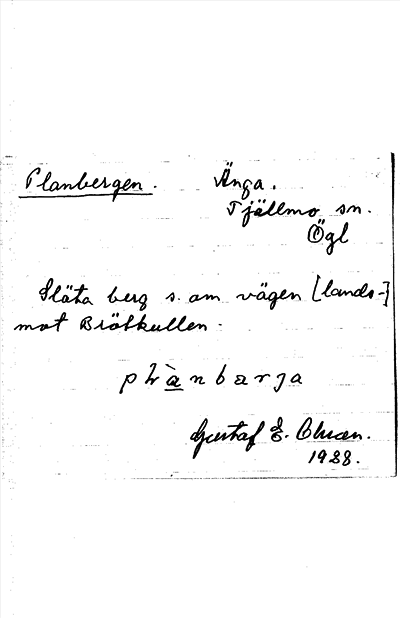 Planbergen.
Änga.
Tjällmo sn.
Ögl
Släta berg s. om vägen [lands-]
mot Brötkullen.
planbarja
Gustaf E.
1938.